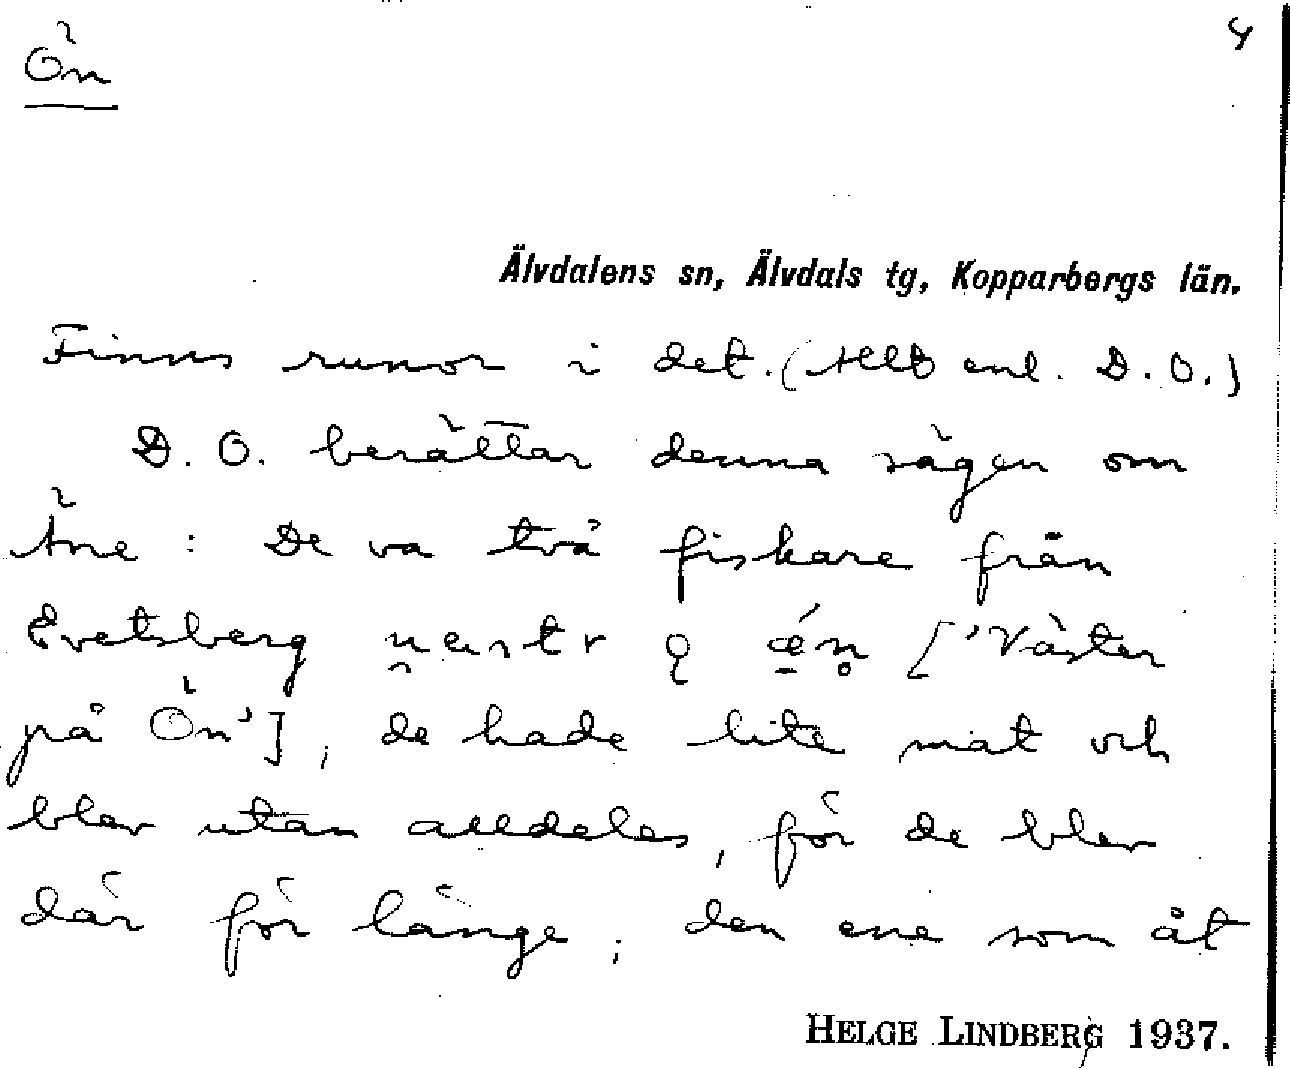 Ön 4
Älvdalens sn, Älvdals tg, Kopparbergs län.
Finns runor i det. (Allt enl. D. O.)
D. O. berättar denna sägen om
Äne : De va två fiskare från
Evertsberg
på Ön'], de hade lite mat och
blev utan alldeles, för de blev
där för länge; den ene som åt
HELGE LINDBERG 1937.